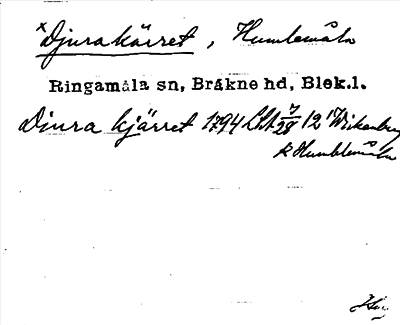 ×Djurakärret, Humlemåla
Ringamåla sn, Bräkne hd, Blek.l.
Djura kjärret 1794 LSA 7/28 12 Wickenberg
R Humblemåla